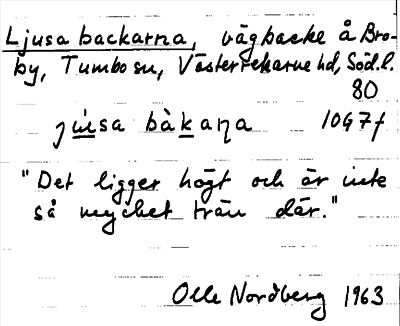 Ljusa backarna, vägbacke å Bro-
by, Tumbo sn, Västerrekarne hd, Söd.l.
80
jùsa bàkaṇa 10G7f
"Det ligger högt och är inte
så mycket trän där."
Olle Nordberg 1963